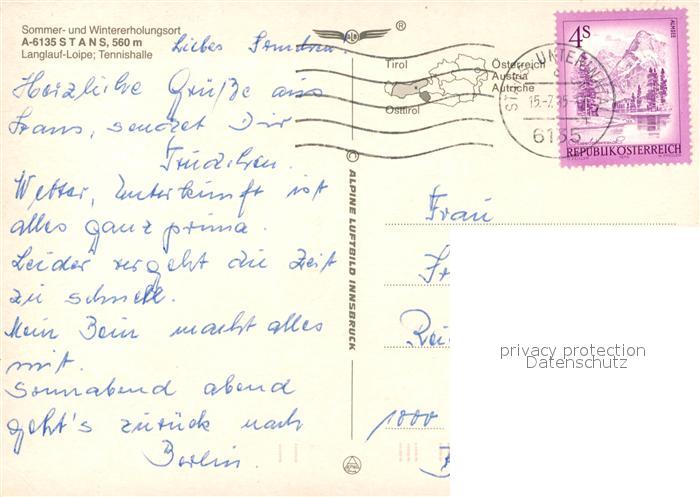 Sommer- und Wintererholungsort
A-6135 STANS, 560 m
Langlauf-Loipe; Tennishalle
Liebes
Herzliche Grüße aus
Stans, sendet Dir
Trudchen.
Wetter, Unterkunft ist
alles ganz prima.
Leider vergeht die Zeit
zu schnell.
Mein Bein macht alles
mit.
Sonnabend abend
geht's zurück nach
Berlin.
© ALPINE LUFTBILD INNSBRUCK
®
Tirol
Osttirol
Österreich
Austria
Autriche
4S
ALMSEE
REPUBLIK ÖSTERREICH
6135
Frau
Fr
Rei
1000
B
privacy protection
Datenschutz